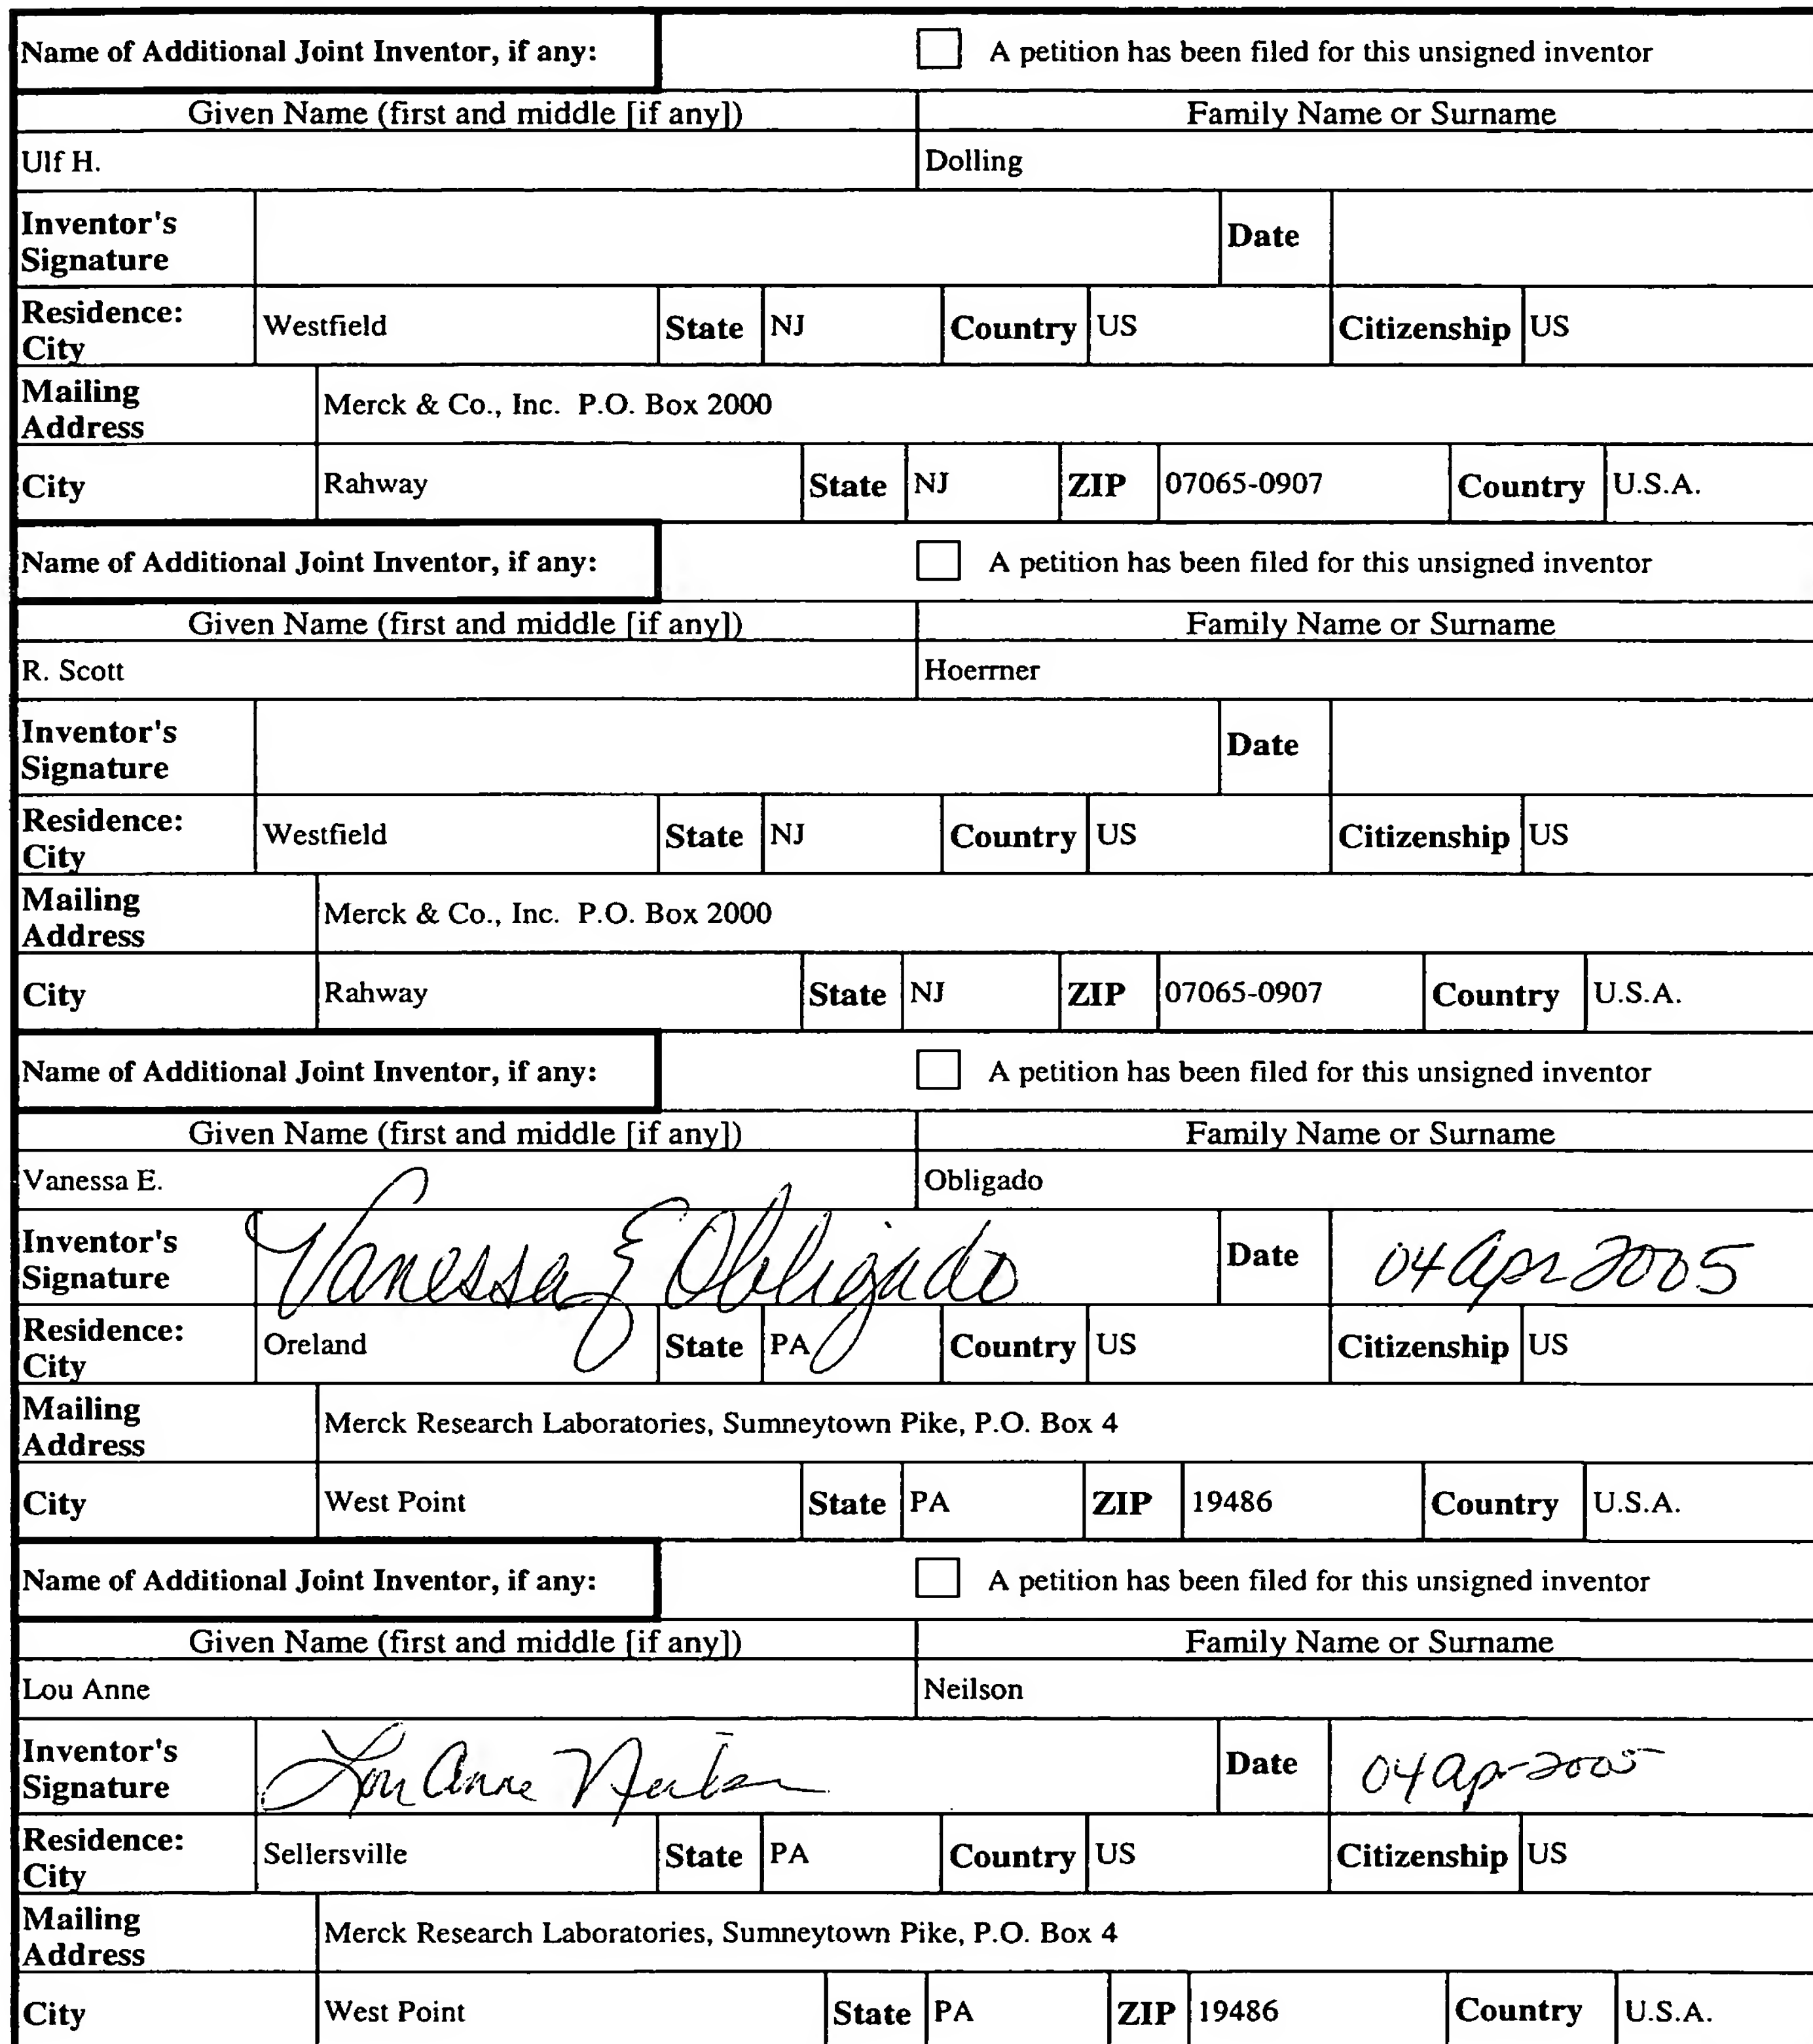 Name of Additional Joint Inventor, if any: A petition has been filed for this unsigned inventor
Given Name (first and middle [if any]) Family Name or Surname
Ulf H. Dolling
Inventor's Signature Date
Residence: City Westfield State NJ Country US Citizenship US
Mailing Address Merck & Co., Inc. P.O. Box 2000
City Rahway State NJ ZIP 07065-0907 Country U.S.A.
Name of Additional Joint Inventor, if any: A petition has been filed for this unsigned inventor
Given Name (first and middle [if any]) Family Name or Surname
R. Scott Hoerrner
Inventor's Signature Date
Residence: City Westfield State NJ Country US Citizenship US
Mailing Address Merck & Co., Inc. P.O. Box 2000
City Rahway State NJ ZIP 07065-0907 Country U.S.A.
Name of Additional Joint Inventor, if any: A petition has been filed for this unsigned inventor
Given Name (first and middle [if any]) Family Name or Surname
Vanessa E. Obligado
Inventor's Signature Vanessa E Obligado Date 04 Apr 2005
Residence: City Oreland State PA Country US Citizenship US
Mailing Address Merck Research Laboratories, Sumneytown Pike, P.O. Box 4
City West Point State PA ZIP 19486 Country U.S.A.
Name of Additional Joint Inventor, if any: A petition has been filed for this unsigned inventor
Given Name (first and middle [if any]) Family Name or Surname
Lou Anne Neilson
Inventor's Signature Lou Anne Neilson Date 04 Apr 2005
Residence: City Sellersville State PA Country US Citizenship US
Mailing Address Merck Research Laboratories, Sumneytown Pike, P.O. Box 4
City West Point State PA ZIP 19486 Country U.S.A.